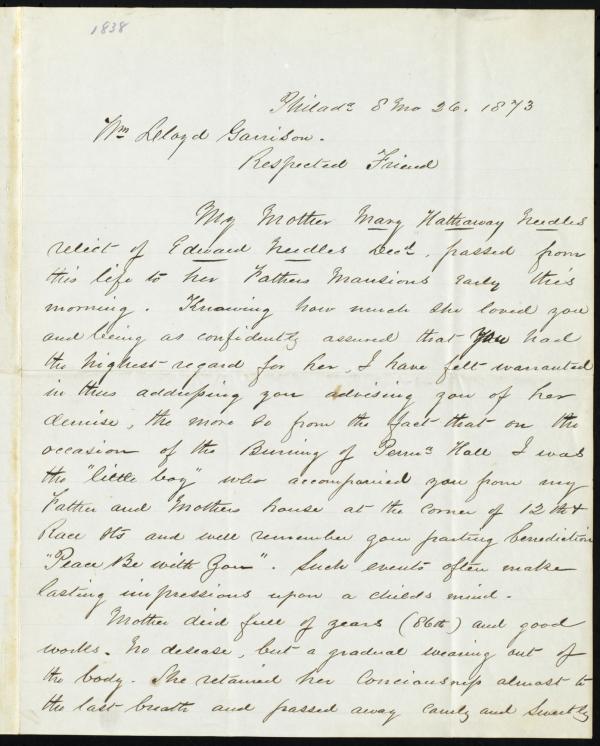 1838
Philada 8 Mo 26. 1873
Wm Lloyd Garrison.
Respected Friend
My Mother Mary Hathaway Needles
relict of Edward Needles Decd, passed from
this life to her Fathers Mansions early this
morning. Knowing how much she loved you
and being as confidently assured that you had
the highest regard for her, I have felt warranted
in thus addressing you advising you of her
demise, the more so from the fact that on the
occasion of the Burning of Penna Hall I was
the "little boy" who accompanied you from my
Father and Mothers house at the corner of 12th &
Race Sts and well remember your parting benediction
"Peace Be with You". Such events often make
lasting impressions upon a childs mind.
Mother died full of years (86th) and good
works. No desease, but a gradual wearing out of
the body. She retained her almost to
the last breath and passed away and sweetly